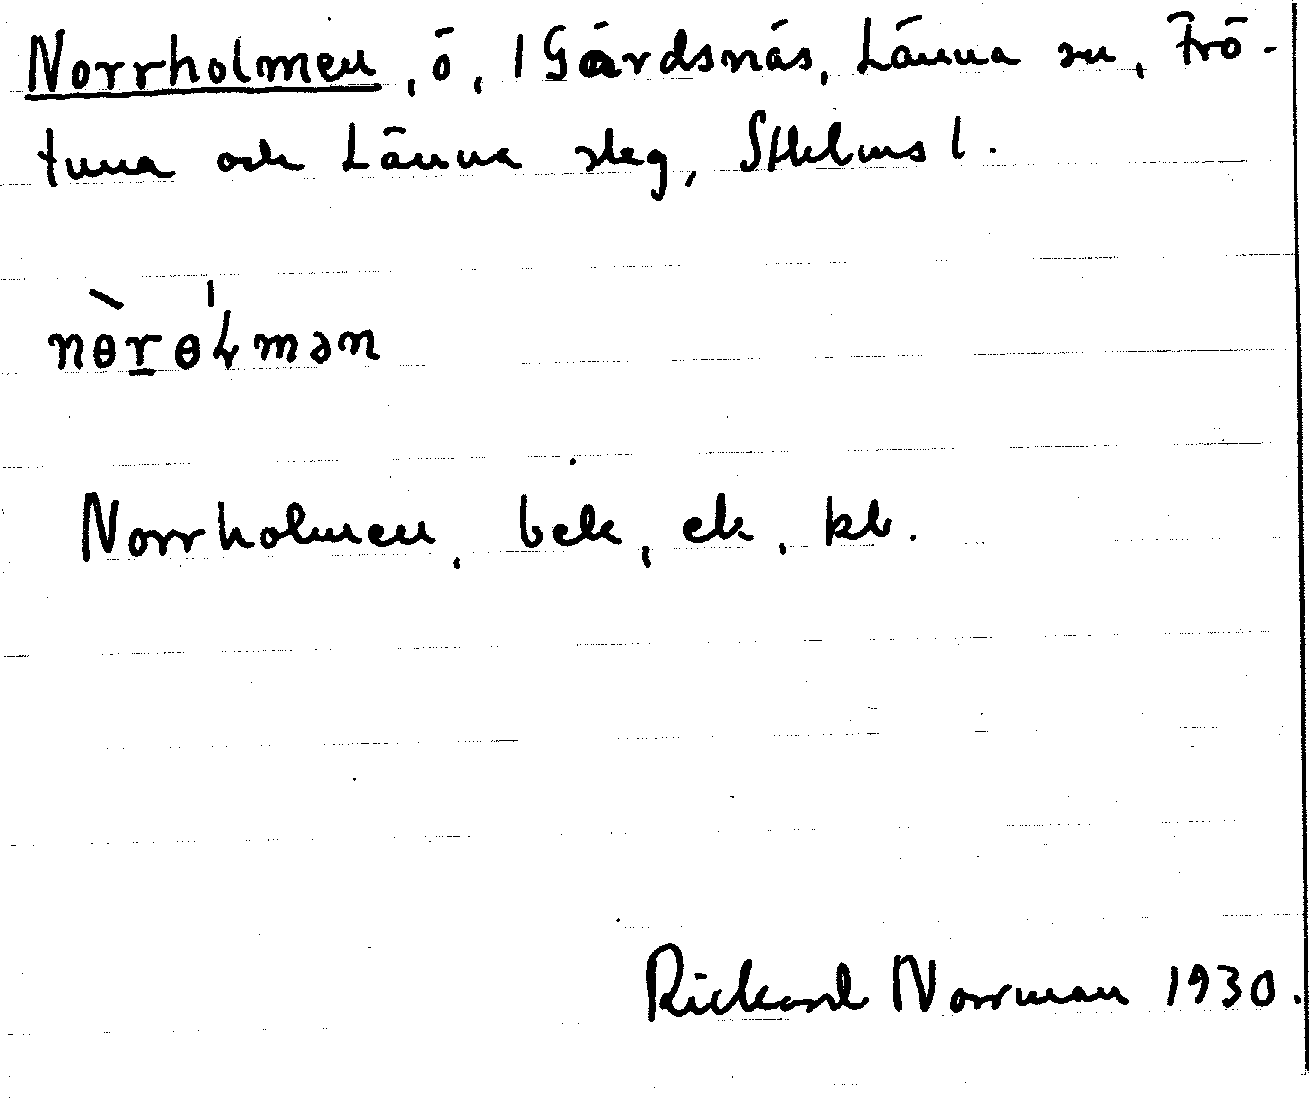 Norrholmen, ö, 1 Gårdsnäs, Länna sn, Frö-
tuna och Länna slag, Sthlms l.
nɵ̀rɵ'ɫmən
Norrholmen, bek, ek, kb.
Rickard Norrman 1930.